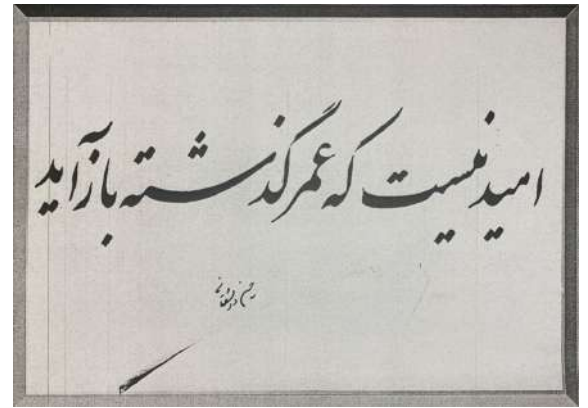 امید نیست که عمر گذشته بازآید